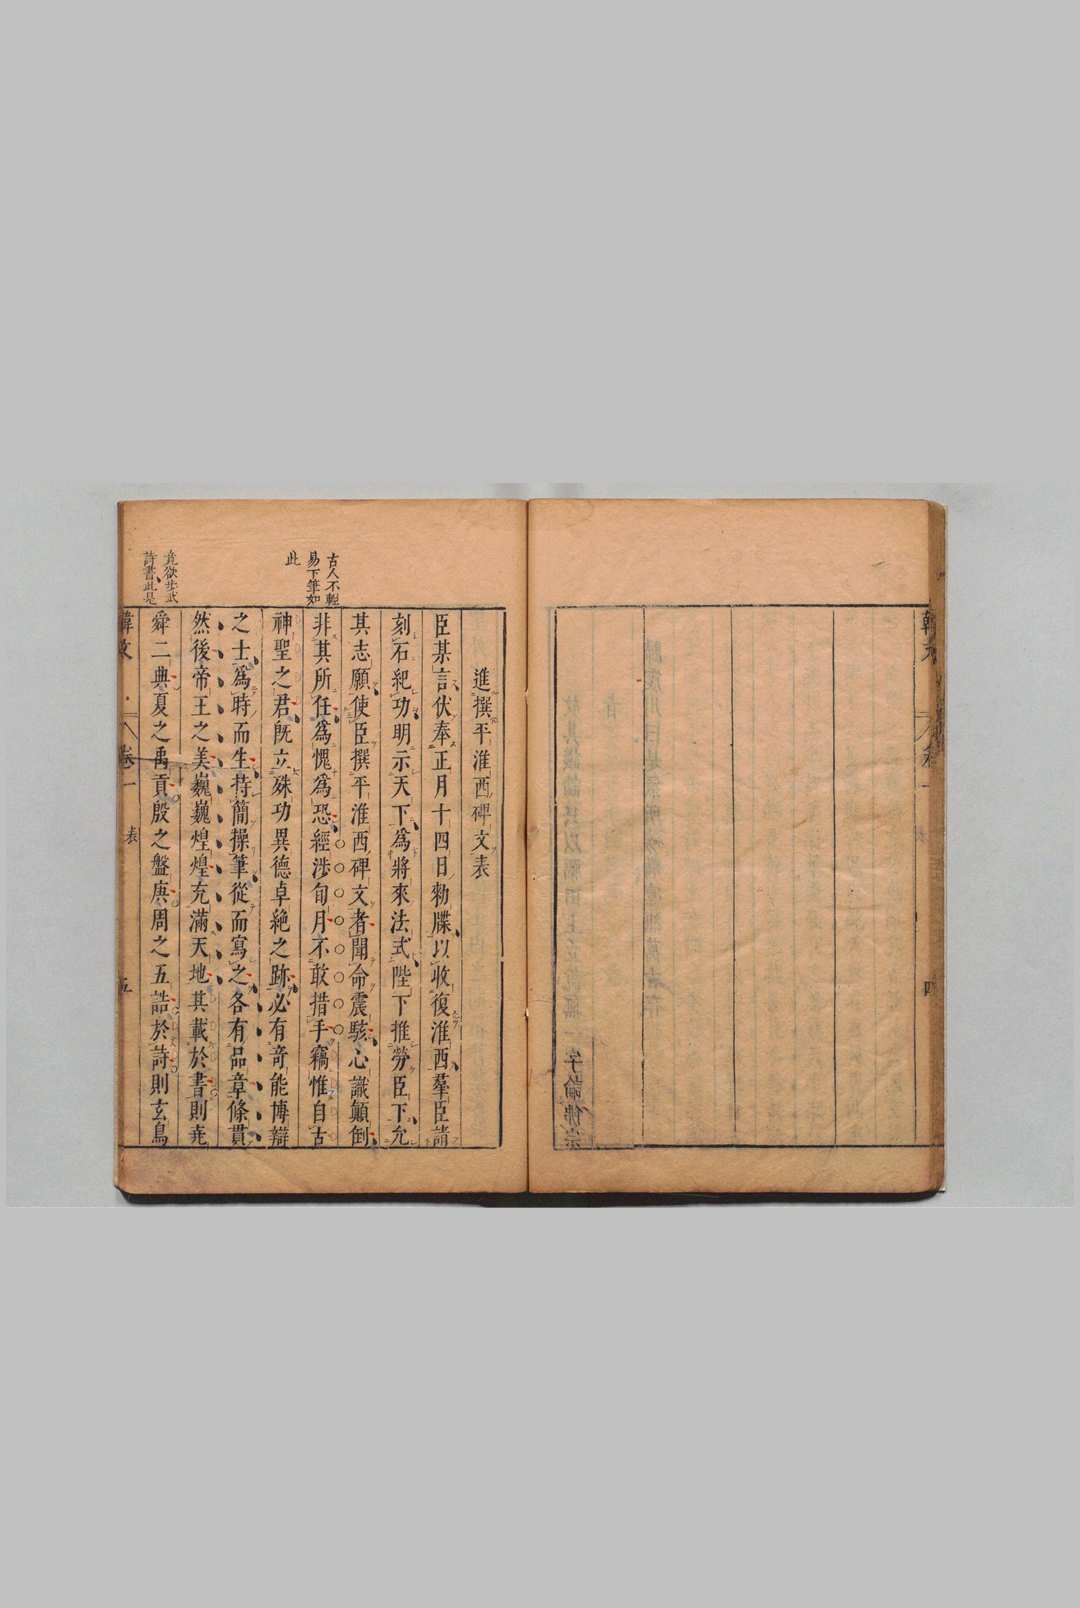 字論佛宗
進撰平淮西碑文表
臣某言伏奉正月十四日勑牒以收復淮西羣臣請
刻石紀功明示天下爲將來法式陛下推勞臣下允
其志願使臣撰平淮西碑文者聞命震駭心識顛倒
非其所任爲愧爲恐經涉旬月不敢措手竊惟自古
神聖之君既立殊功異德卓絶之跡必有竒能博辯
之士爲時而生持簡操筆從而寫之各有品章條貫
然後帝王之美巍巍煌煌充滿天地其載於書則堯
舜二典夏之禹貢殷之盤庚周之五誥於詩則玄鳥
古人不輕
易下筆如
此
詩書此是
韓文
卷一
表
五